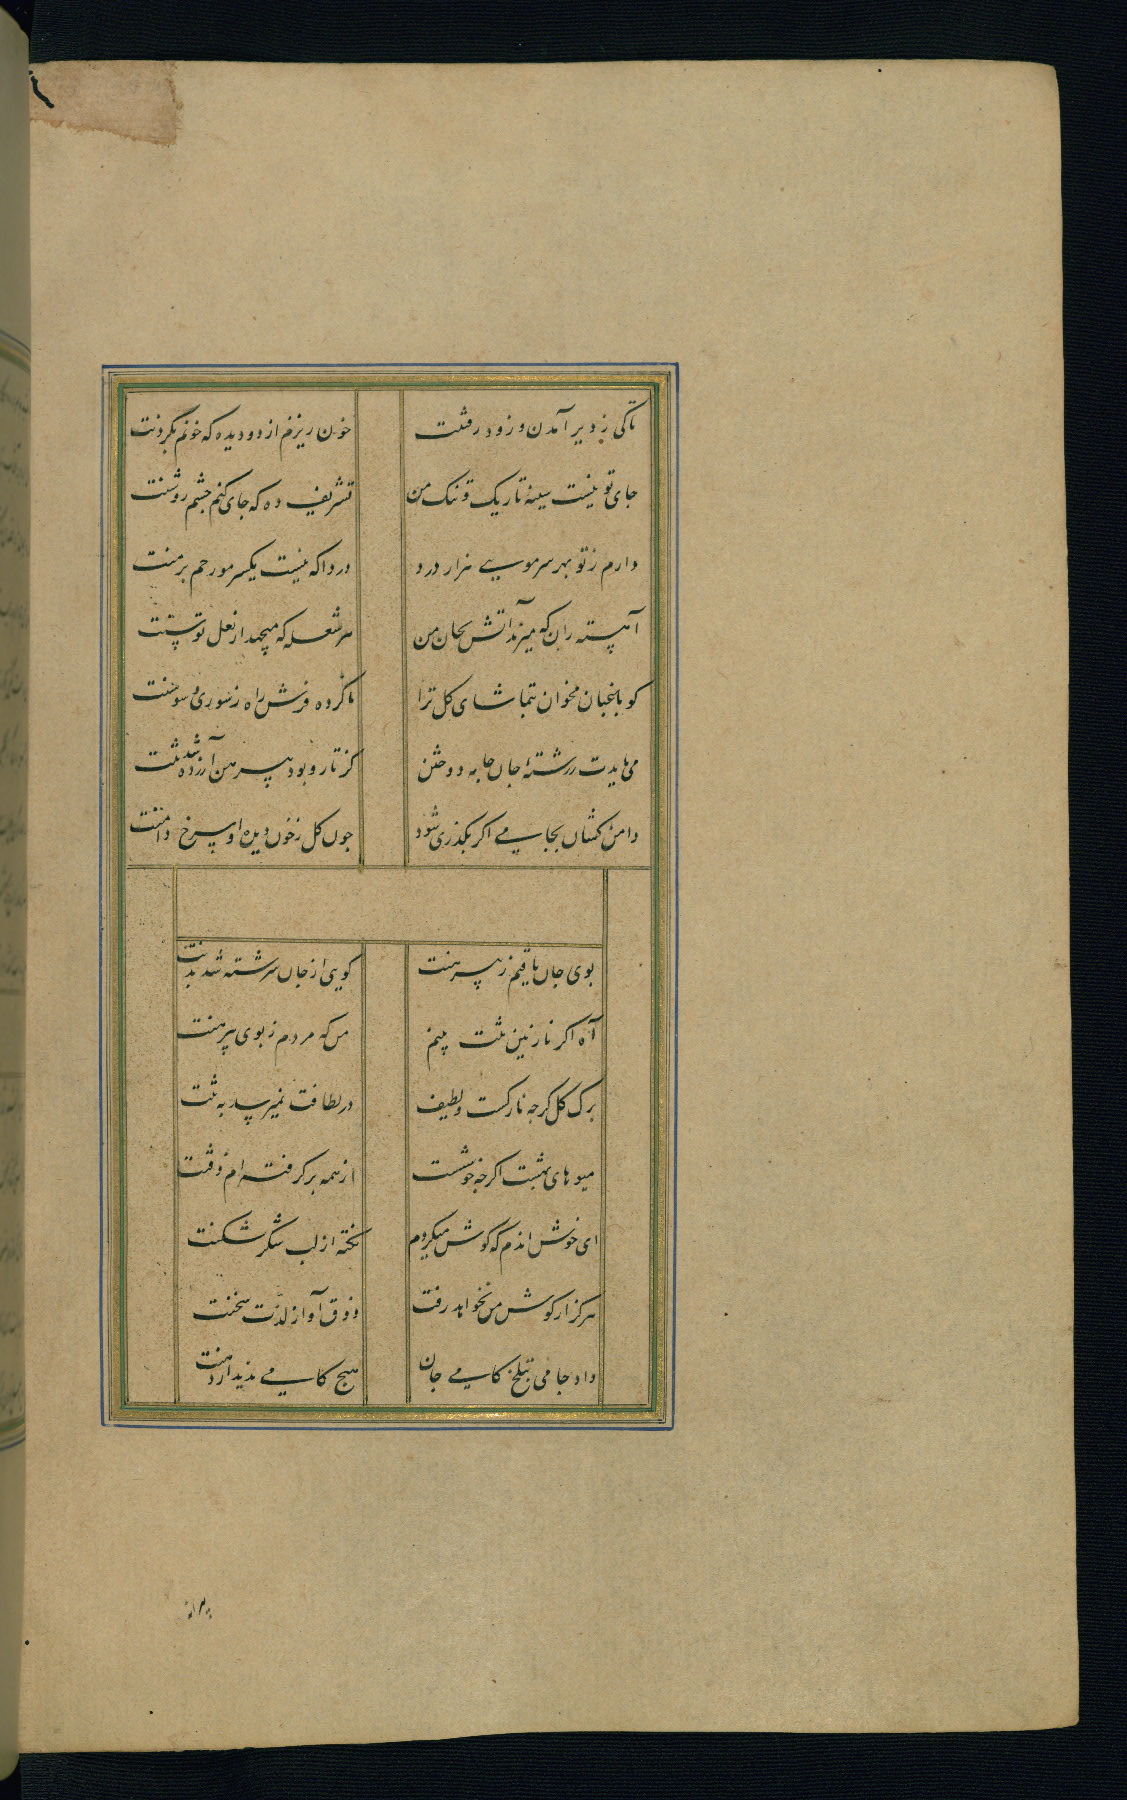 تاکی ز دیر آمدن و زود رفتنت خون ریزم از دو دیده که خونم بگردنت
جای تو نیست سینهٔ تاریک و تنک من تشریف ده که جای کنم چشم روشنت
دارم ز تو بهر سر مویی هزار درد دردا که نیست یکسر مو رحم بر منت
آهسته ران که میزند آتش بجان من هر شعله که میجهد از نعل توسنت
کو باغبان مخوان بتماشای کل ترا ناکرده فرش راه ز سوری و سوسنت
می بایدت ز رشتهٔ جان جامه دوختن کز تار و بود پیرهن آزرده شد تنت
دامن کشان بجامی اکر بکذری شود چون کل ز خون دیدهٔ او سرخ دامنت
بوی جان یافتم ز پیرهنت کویی از جان سرشته شد بدنت
آه اکر نازنین تنت بینم من که مردم ز بوی پیرهنت
برک کل کرچه نازکست و لطیف در لطافت نمیرسد به تنت
میوهای بهشت اکرچه خوشست از همه برکرفته ام ذقنت
ای خوش اندم که کوش میکردم نکته از لب شکر شکنت
هرکز از کوش من نخواهد رفت ذوق آواز لذت سخنت
داد جامی بتلخ کامی جان هیچ کامی ندید از دهنت